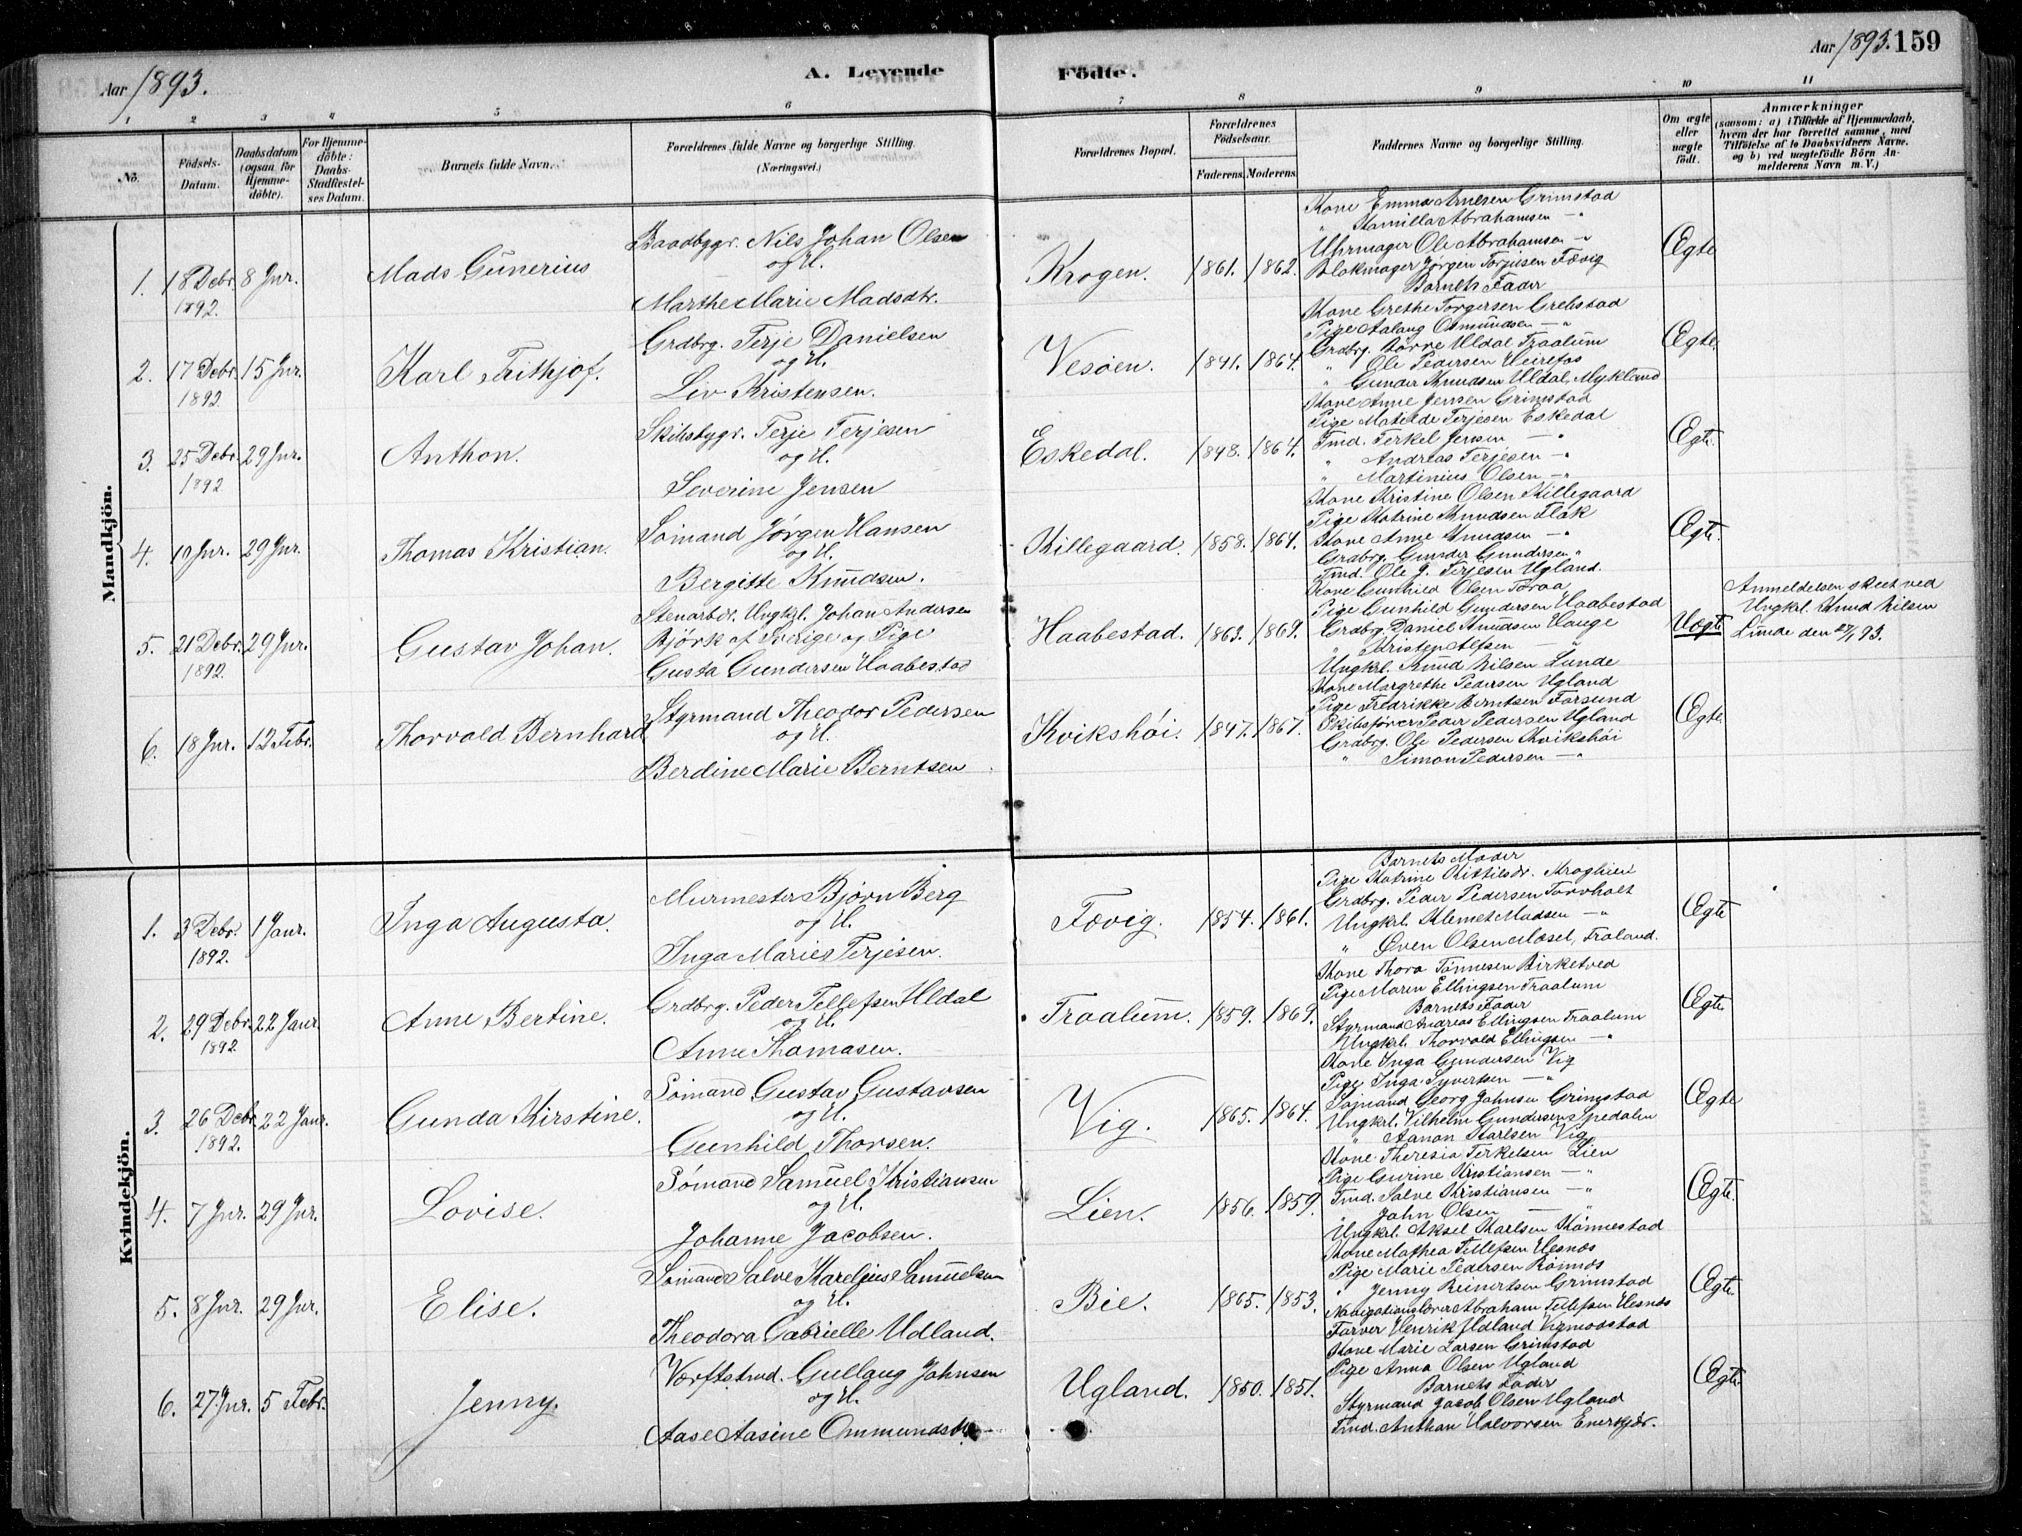 Aar 1893. A. Levende Födte. Aar 1893. 159
1 2 3 4 5 6 7 8 9 10 11
No.
Födsels-Datum.
Daabsdatum (ogsaa for Hjemmedöbte).
For Hjemmedöbte: Daabs-Stadfæstelses Datum.
Barnets fulde Navn.
Forældrenes fulde Navne og borgerlige Stilling.
(Næringsvei.)
Forældrenes Bopæl.
Forældrenes Födselsaar.
Faderens. Moderens.
Faddernes Navne og borgerlige Stilling.
Om ægte eller uægte födt.
Anmærkninger
(saasom: a) i Tilfælde af Hjemmedaab, hvem der har forrettet samme, med Tilföielse af to Daabsvidners Navne, og b) ved uægtefödte Börn Anmelderens Navn m. V.)
Mandkjön.
1. 18 Debr. 1892. 8 Jnr. Mads Gunerius
Baadbyggr. Nils Johan Olsen
og H.
Marthe Marie Madsdtr.
Krogen. 1861. 1862.
Kone Emma Arnesen Grimstad
" Kamilla Abrahamsen —"
Uhrmager Ole Abrahamsen —"
Blokmager Jørgen Torjusen Fævig
Barnets Fader
Ægte
2. 17 Debr. 1892 15 Jnr. Karl Frithjof.
Grdbrg. Terje Danielsen
og H.
Liv Kristensen.
Vesøen. 1841. 1864.
Kone Grethe Torgersen Grebstad
Pige Aslaug Osmundsen —"
Grdbrg. Børre Uldal Traalum
" Ole Pedersen Heirefos
" Gunder Knudsen Uldal, Mykland
Ægte.
3. 25 Debr. 1892 29 Jnr. Anthon.
Skibsbygr. Terje Terjesen
og H.
Severine Jensen
Eskedal. 1848. 1864.
Kone Anne Jensen Grimstad
Pige Matilde Terjesen Eskedal
Tmd. Terkel Jensen —"
" Andreas Terjesen —"
" Martinius Olsen —"
Ægte.
4. 19 Jnr. 29 Jnr. Thomas Kristian.
Sømand Jørgen Hansen
og H.
Bergitte Knudsen.
Killegaard. 1858. 1864.
Kone Kristine Olsen Killegaard
Pige Katrine Knudsen Flak
Kone Anne Knudsen —"
Grdbrg. Gunder Gundersen "
Tmd. Ole G. Terjesen Ugland.
Ægte.
5. 21 Debr. 1892. 29 Jnr. Gustav Johan.
Stenarbdr. Ungkrl. Johan Andersen
Bjørk af Sverige og Pige
Gusta Gundersen Haabestad
Haabestad. 1863. 1869.
Kone Gunhild Olsen Foraa
Pige Gunhild Gundersen Haabestad
Grdbrg. Daniel Knudsen Hauge
" Kristen Alfsen —"
Ungkrl. Knud Nilsen Lunde
Uægte
Anmeldelsen skeet ved
Ungkrl. Knud Nilsen
Lunde den 27/1 93.
6. 18 Jnr. 12 Febr. Thorvald Bernhard
Styrmand Theodor Pedersen
og H.
Berdine Marie Berntsen
Kvikshøi. 1847. 1867.
Kone Margrethe Pedersen Ugland
Pige Fredrikke Berntsen Farsund
Skibsfører Peder Pedersen Ugland
Grdbrg. Ole Pedersen Kvikshøi
" Simon Pedersen —"
Ægte
Kvindekjön.
1. 3 Debr. 1892. 1 Janr. Inga Augusta.
Murmester Bjørn Berg
og H.
Inga Marie Terjesen.
Fævig. 1854. 1861.
Barnets Moder
Pige Katrine Kittilsdr. Kroglien
Grdbrg. Peder Pedersen Torvholt
Ungkrl. Klemet Madsen —"
" Sven Olsen Mæsel, Froland.
Ægte
2. 29 Debr. 1892 22 Janr. Anne Bertine.
Grdbrg. Peder Tellefsen Uldal
og H.
Anne Thomasen.
Traalum. 1859. 1869.
Kone Thora Tønnesen Birketved
Pige Maren Ellingsen Traalum
Barnets Fader
Styrmand Andreas Ellingsen Traalum
Ungkrl. Thorvald Ellingsen —"
Ægte.
3. 26 Debr. 1892. 22 Janr. Gunda Kirstine.
Sømand Gustav Gustavsen
og H.
Gunhild Thorsen.
Vig. 1865. 1864.
Kone Inga Gundersen Vig
Pige Inga Syvertsen —"
Sømand Georg Johnsen Grimstad
Ungkrl. Vilhelm Gundersen Spedalen
" Aanon Karlsen Vig
Ægte
4. 7 Jnr. 29 Jnr. Lovise.
Sømand Samuel Kristiansen
og H.
Johanne Jacobsen.
Lien. 1856. 1859.
Kone Theresia Terkelsen Lien
Pige Gurine Kristiansen —"
Tmd. Salve Kristiansen —"
" John Olsen —"
Ungkrl. Aksel Karlsen Konnestad
Ægte.
5. 8 Jnr. 29 Jnr. Elise.
Sømand Salve Karelius Samuelsen
og H.
Theodora Gabrielle Udland.
Bie. 1865. 1853.
Kone Mathea Tellefsen Hesnæs
Pige Marie Pedersen Rønnæs
" Jenny Reinertsen Grimstad
Navigationslærer Abraham Tellefsen Hesnæs
Farver Henrik Udland Vigmodstad
Ægte.
6. 27 Jnr. 5 Febr. Jenny.
Værftstmd. Gullaug Johnsen
og H.
Aase Aasine Ommundsdtr.
Ugland. 1850. 1851.
Kone Marie Larsen Grimstad
Pige Anna Olsen Ugland
Barnets Fader
Styrmand Jacob Olsen Ugland
Tmd. Anthon Halvorsen Enerkjær.
Ægte.